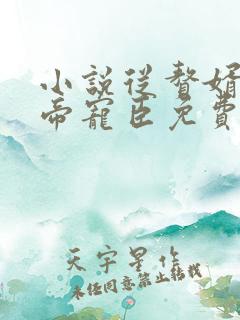 小說從贅婿
帝寵臣免費
天宇星作
未经同意禁止转载